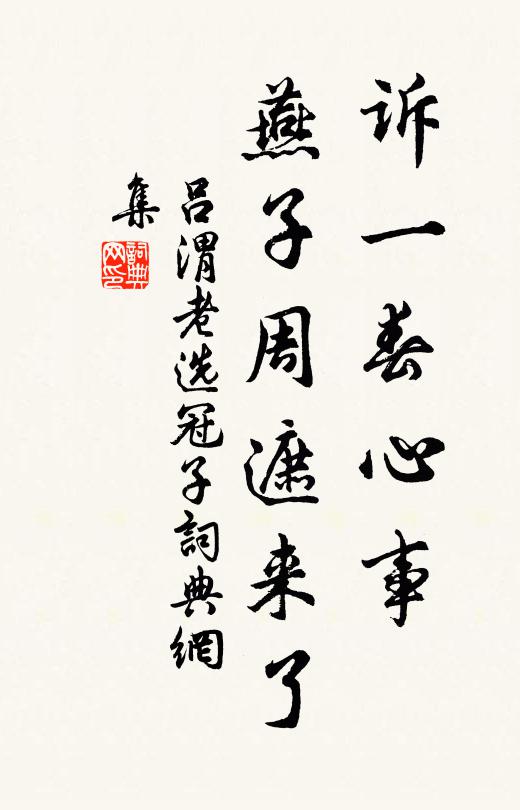 诉一春心事
燕子周遮来了
吕渭老选冠子詞典網
集
詞典网印